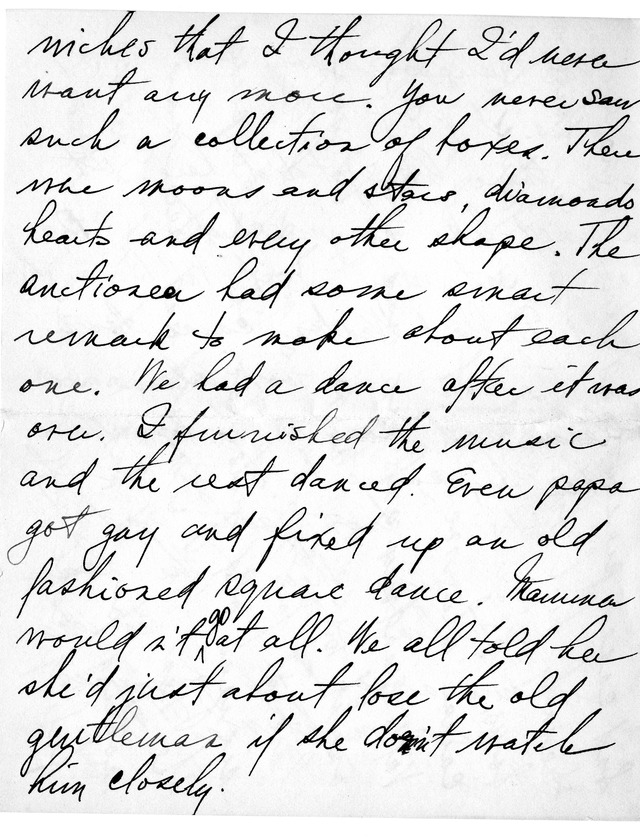 wiches that I thought I'd never
want any more. You never saw
such a collection of boxes. There
were moons and stars, diamonds
hearts and every other shape. The
auctioneer had some smart
remark to make about each
one. We had a dance after it was
over. I furnished the music
and the rest danced. Even papa
got gay and fixed up an old
fashioned square dance. Mamma
would n't go at all. We all told her
she'd just about lose the old
gentleman if she doesn't watch
him closely.